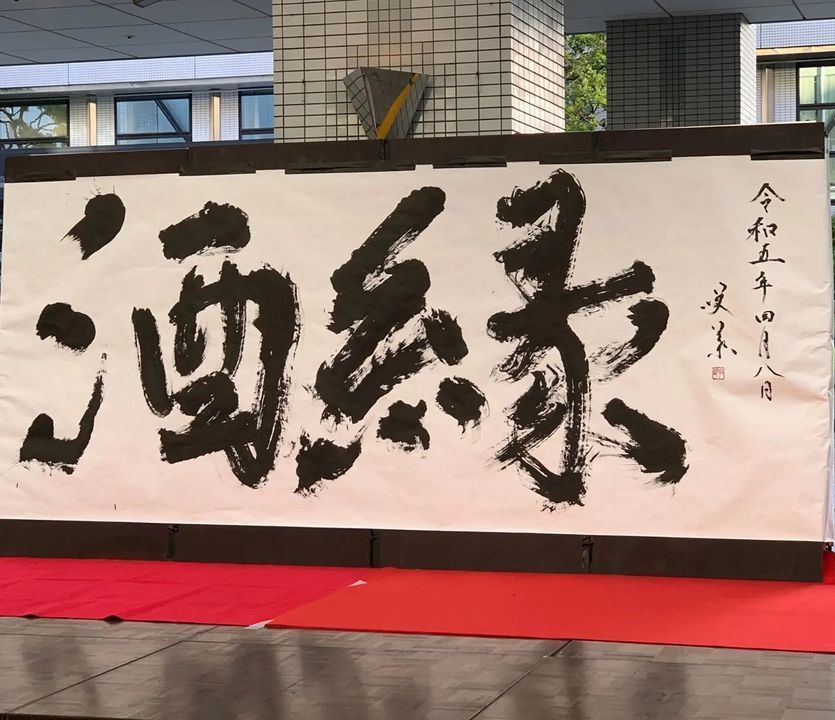 酒縁
令和五年四月八日